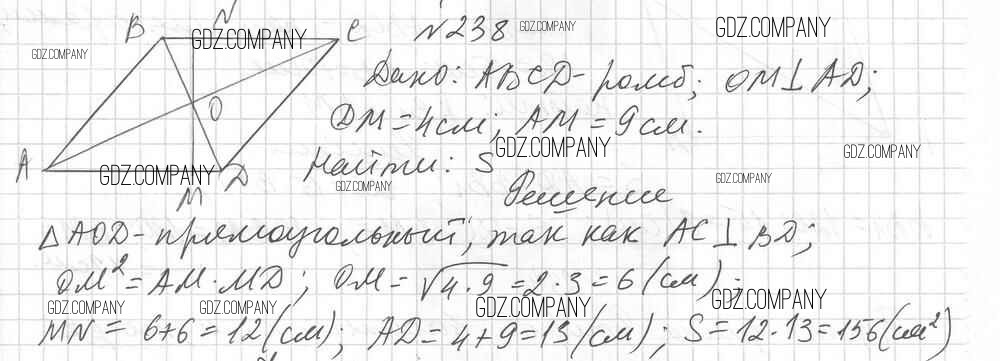 N238
Дано: ABCD - ромб; OM⊥AD;
DM = 4 см; AM = 9 см.
Найти: S
Решение
△AOD - прямоугольный, так как AC⊥BD;
OM² = AM·MD; OM = √4·9 = 2·3 = 6 (см);
MN = 6+6 = 12 (см); AD = 4+9 = 13 (см); S = 12·13 = 156 (см²)
B
N
C
O
A
M
D
GDZ.COMPANY
GDZ.COMPANY
GDZ.COMPANY
GDZ.COMPANY
GDZ.COMPANY
GDZ.COMPANY
GDZ.COMPANY
GDZ.COMPANY
GDZ.COMPANY
GDZ.COMPANY
GDZ.COMPANY
GDZ.COMPANY
GDZ.COMPANY